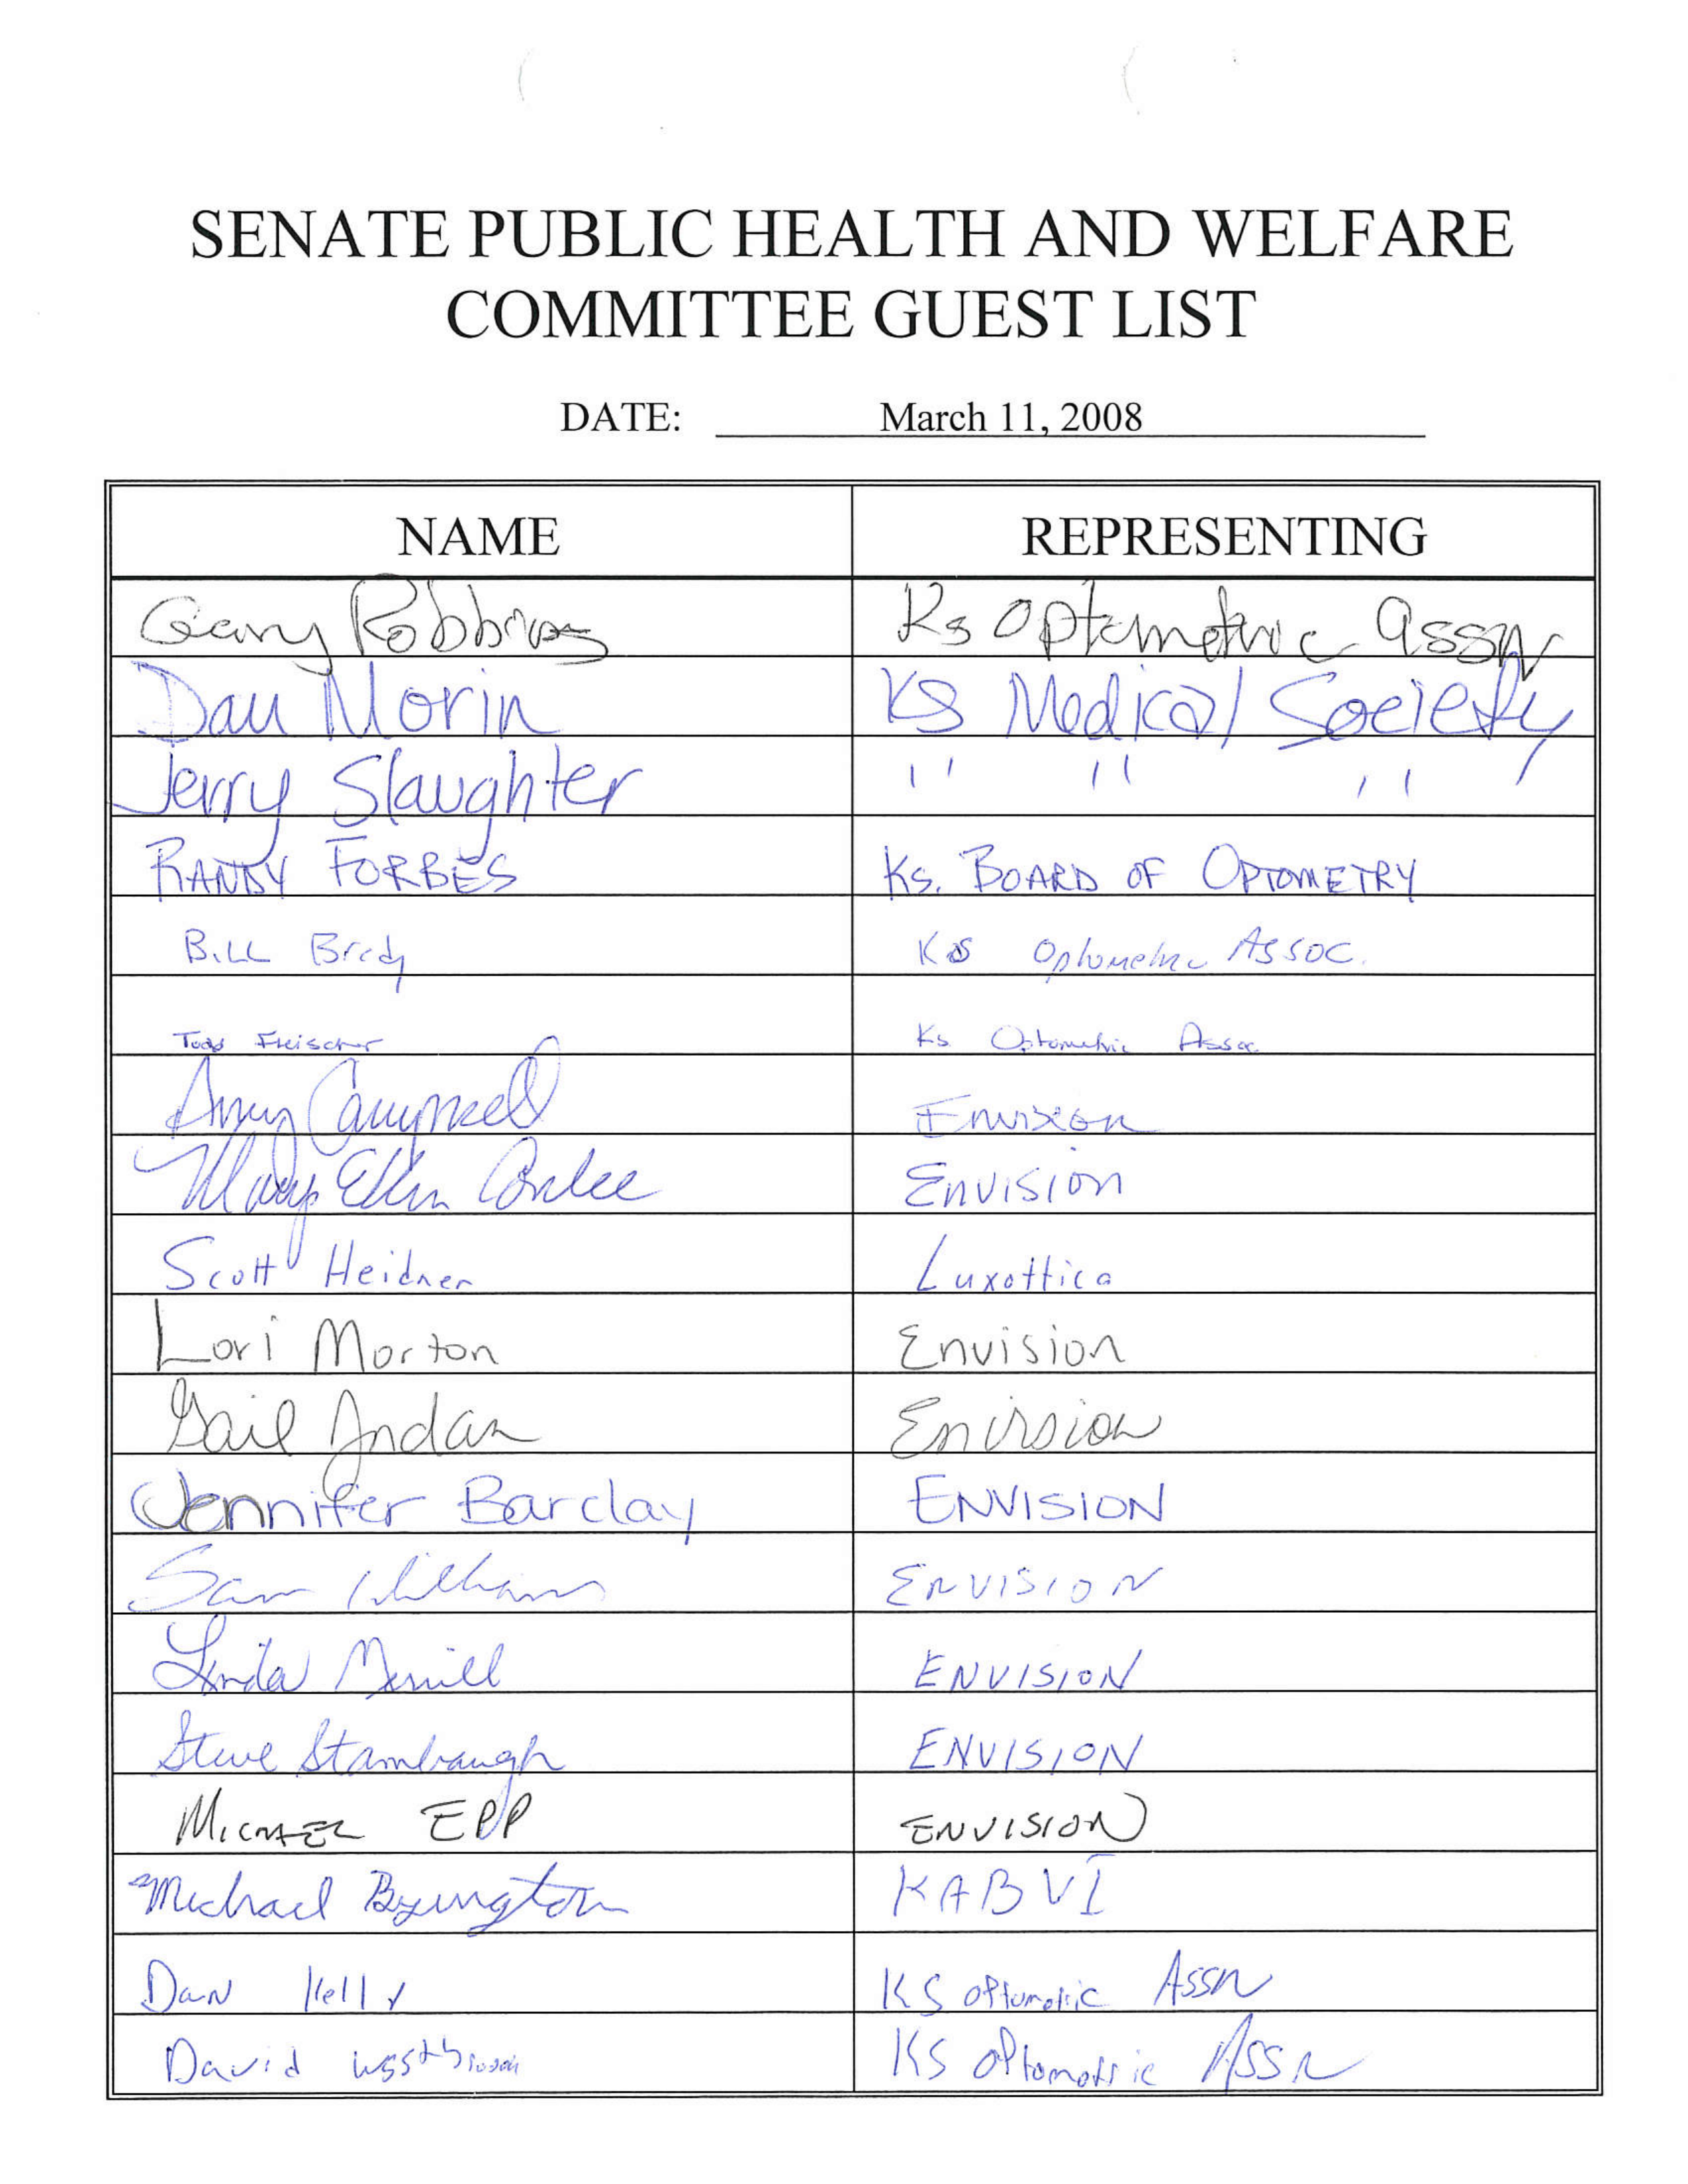 SENATE PUBLIC HEALTH AND WELFARE
COMMITTEE GUEST LIST
DATE: March 11, 2008
NAME REPRESENTING
Gary Robbins Ks Optometric assn
Dan Morin KS Medical Society
Jerry Slaughter " " "
RANDY FORBES Ks. BOARD OF OPTOMETRY
BILL Brady KS Optometric Assoc.
Todd Fleischer Ks Optometric Assoc
Amy Campbell Envision
Mary Ellen Conlee Envision
Scott Heidner Luxottica
Lori Morton Envision
Gail Envision
Jennifer Barclay ENVISION
Sam Williams ENVISION
Linda Merrill ENVISION
Steve Stambaugh ENVISION
MICHAEL EPP ENVISION
Michael Byington KABVI
Dan Kelly KS optometric Assn
David KS optometric Assn